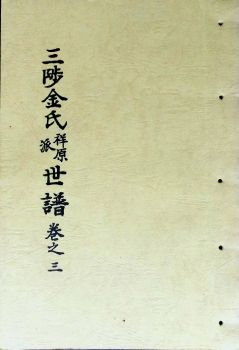 三陟金氏祥原派世譜卷之三